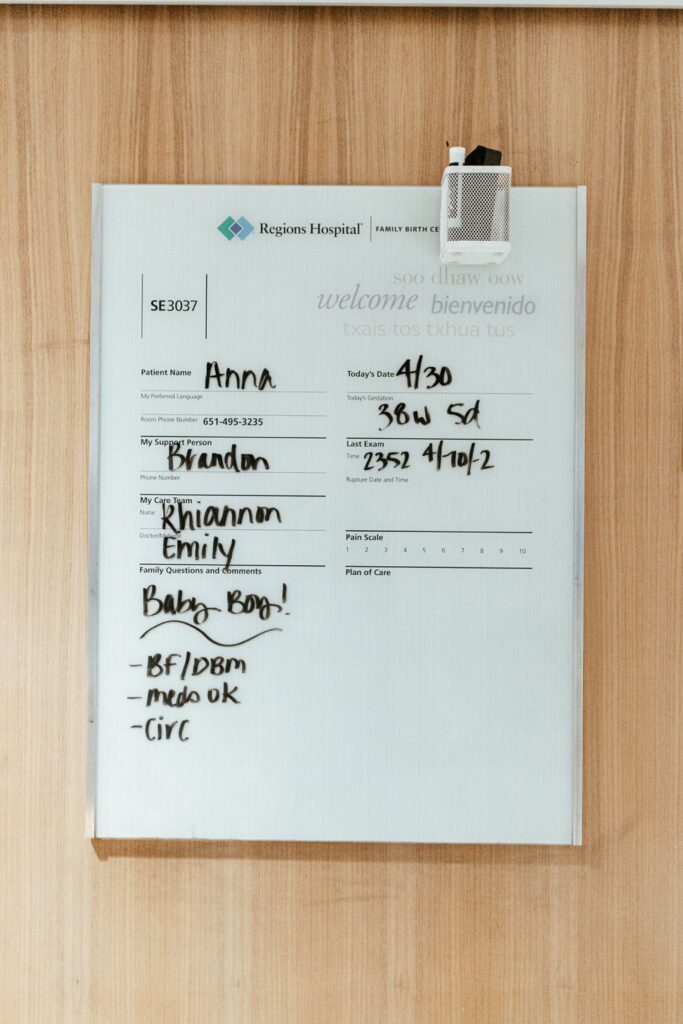 Regions Hospital® | FAMILY BIRTH CE
SE3037
soo dhaw oow
welcome bienvenido
txais tos txhua tus
Patient Name Anna
My Preferred Language
Room Phone Number 651-495-3235
My Support Person
Brandon
Phone Number
My Care Team
Nurse Rhiannon
Emily
Family Questions and Comments
Baby Boy!
-BF/DBM
-meds ok
-Circ
Today's Date 4/30
Today's Gestation
38w 5d
Last Exam
Time 2352 4/-70/-2
Rupture Date and Time
Pain Scale
1 2 3 4 5 6 7 8 9 10
Plan of Care